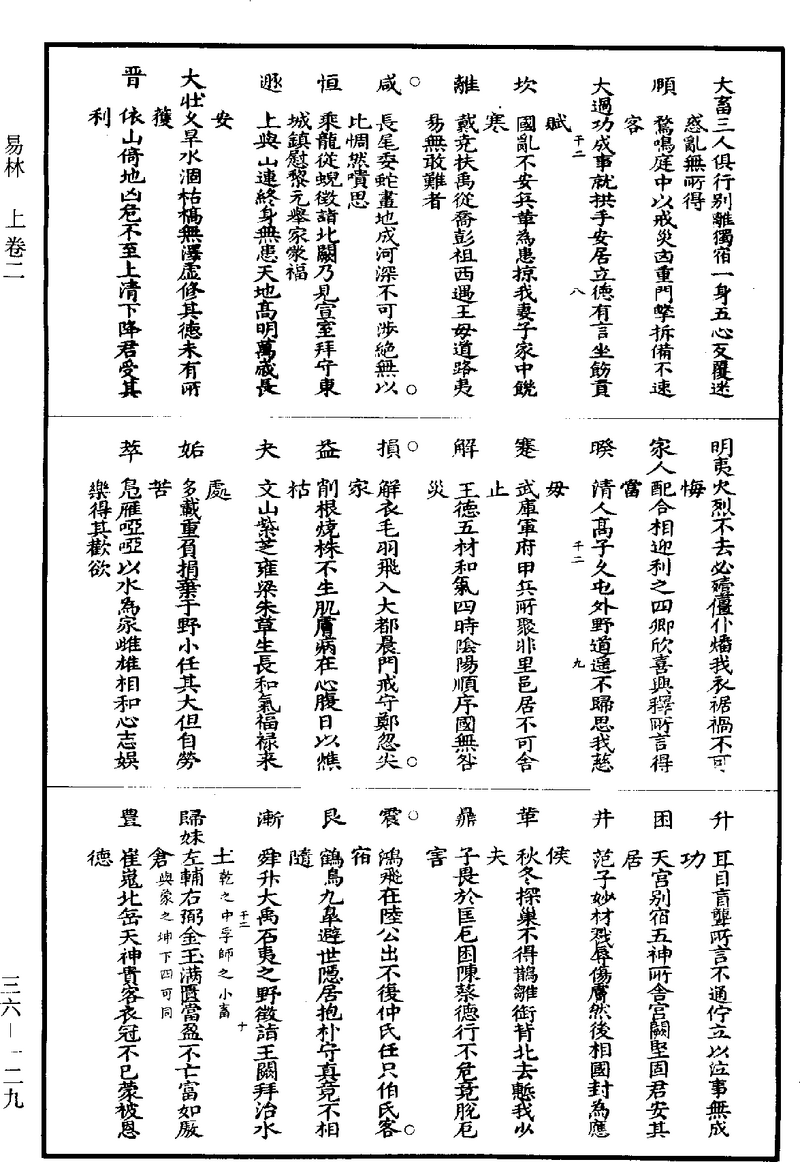 大畜三人俱行别離獨宿一身五心反覆迷
惑亂無所得
頤　鶖鳴庭中以戒災凶重門擊拆備不速
客
大過功成事就拱手安居立德有言坐飭貢
賦
坎　國亂不安兵革為患掠我妻子家中饑
寒
離　戴堯扶禹從喬彭祖西遇王母道路夷
易無敢難者
咸　長尾委蛇畫地成河深不可涉絶無以
比惆然噴思
恒　乘龍從蜺徵詣北闕乃見宣室拜守東
城鎮慰黎元舉家蒙福
遯　上與山連終身無患天地高明萬歲長
安
大壯久旱水涸枯槁無澤虚修其德未有所
獲
晋　依山倚地凶危不至上清下降君受其
利
明夷火烈不去必殯僵仆燔我衣裾禍不可
悔
家人配合相迎利之四卿欣喜興釋所言得
當
暌　清人高子久屯外野道遥不歸思我慈
母
蹇　武庫軍府甲兵所聚非里邑居不可舍
止
解　王德五材和氣四時陰陽順序國無咎
災
損　解衣毛羽飛入大都晨門戒守鄭忽失
家
益　削根燒株不生肌膚病在心腹日以焦
枯
夬　文山紫芝雍梁朱草生長和氣福禄来
處
姤　多載重負捐棄于野小任其大但自勞
苦
萃　鳧雁啞啞以水為家雌雄相和心志娛
樂得其歡欲
升　耳目盲聾所言不通佇立以泣事無成
功
困　天宫别宿五神所舍宫闕堅固君安其
居
井　范子妙材戮辱傷膚然後相國封為應
侯
革　秋冬探巢不得鵲雛銜背北去慙我少
夫
鼎　子畏於匡厄困陳蔡德行不危竟脫厄
害
震　鴻飛在陸公出不復仲氏任只伯氏客
宿
艮　鶴鳥九皐避世隱居抱朴守真竟不相
隨
漸　舜升大禹石夷之野徵詣王闕拜治水
土乾之中孚師之小畜
歸妹左輔右弼金玉滿匱當盈不亡富如厫
倉與蒙之坤下四可同
豊　崔嵬北岳天神貴客衣冠不已蒙被恩
德
易林　上卷二
三六-一二九